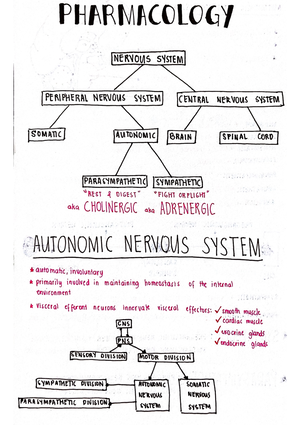 PHARMACOLOGY
NERVOUS SYSTEM
PERIPHERAL NERVOUS SYSTEM CENTRAL NERVOUS SYSTEM
SOMATIC AUTONOMIC BRAIN SPINAL CORD
PARASYMPATHETIC SYMPATHETIC
"REST & DIGEST" "FIGHT OR FLIGHT"
aka CHOLINERGIC aka ADRENERGIC
AUTONOMIC NERVOUS SYSTEM
* automatic, involuntary
* primarily involved in maintaining homeostasis of the internal
environment
* visceral efferent neurons innervate visceral effectors: ✓ smooth muscle
✓ cardiac muscle
✓ exocrine glands
✓ endocrine glands
CNS
PNS
SENSORY DIVISION MOTOR DIVISION
SYMPATHETIC DIVISION AUTONOMIC SOMATIC
NERVOUS NERVOUS
PARASYMPATHETIC DIVISION SYSTEM SYSTEM